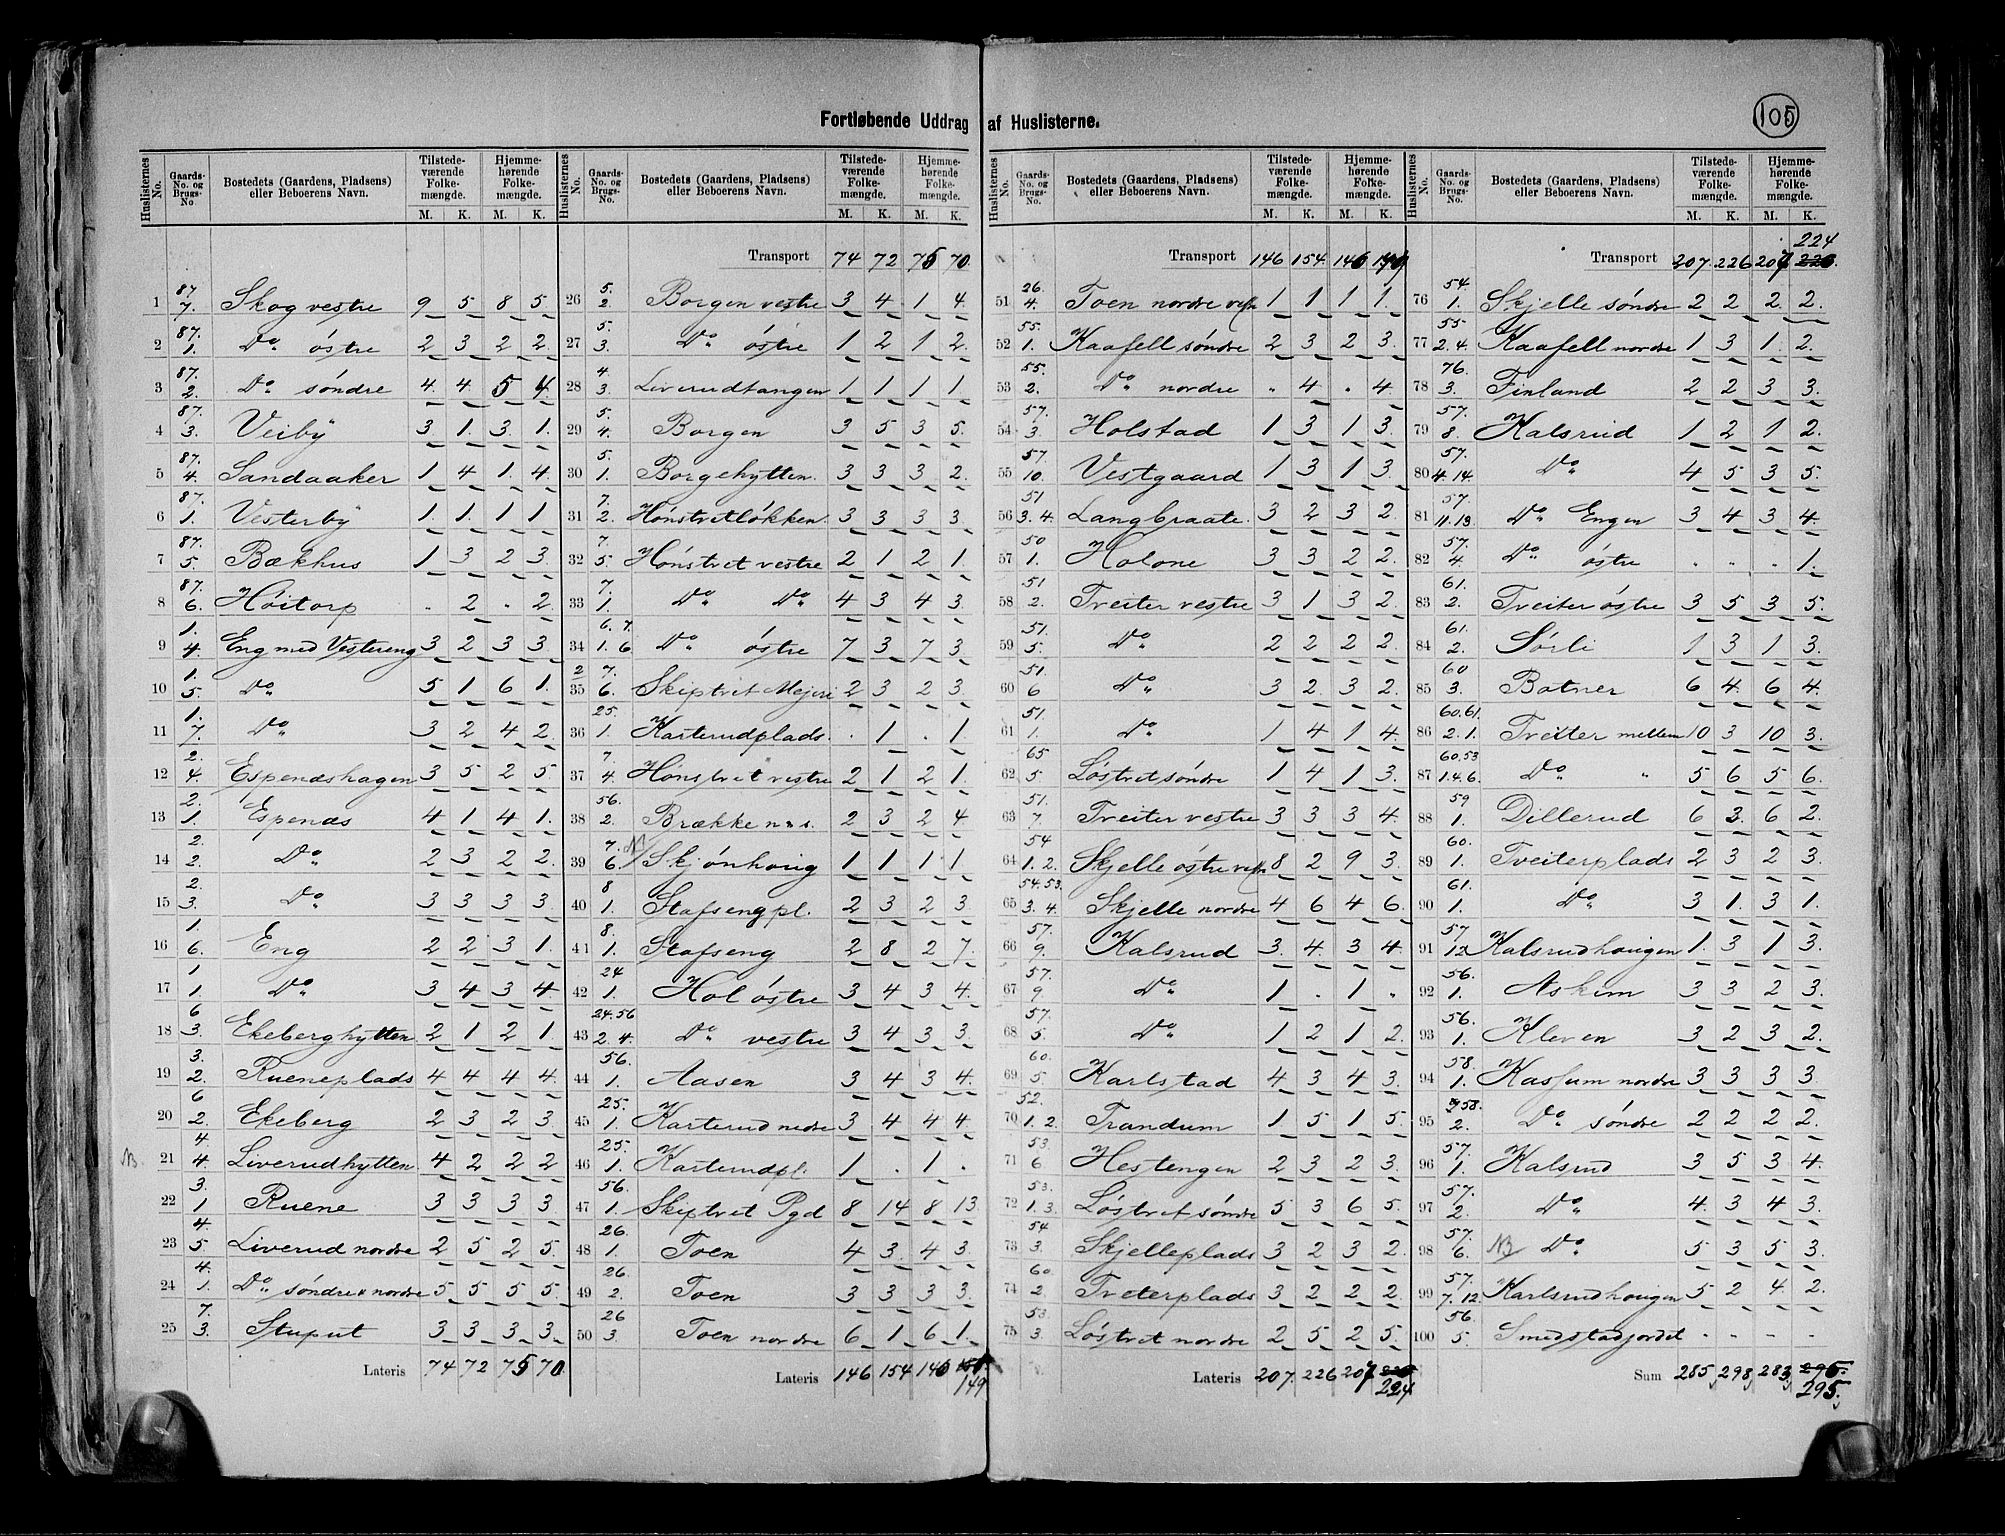 105
Fortløbende Uddrag af Huslisterne.
Huslisternes No. Gaards-No. og Brugs-No Bostedets (Gaardens, Pladsens) eller Beboerens Navn. Tilstedeværende Folkemængde. M. K. Hjemmehørende Folkemængde. M. K.
1 87. 7. Skog vestre 9 5 8 5
2 87. 1. Do østre 2 3 2 2
3 87. 2. Do søndre 4 4 5 4
4 87. 3. Veiby 3 1 3 1
5 87. 4. Sandaaker 1 4 1 4
6 87. 1. Vesterby 1 1 1 1
7 87. 5. Bækhus 1 3 2 3
8 87. 6. Høitorp . 2 . 2
9 1. 4. Eng med Vestereng 3 2 3 3
10 1. 5. Do 5 1 6 1
11 1. 7. Do 3 2 4 2
12 2. 4. Espenæshagen 3 5 2 5
13 2. 1. Espenæs 4 1 4 1
14 2. 2. Do 2 3 2 2
15 2. 3. Do 3 3 3 3
16 1. 6. Eng 2 2 3 1
17 1 1. Do 3 4 3 4
18 6 3. Ekeberghytten 2 1 2 1
19 3. 2. Rueneplads 4 4 4 4
20 6 2. Ekeberg 2 3 2 3
NB. 21 4. 4. Liverudhytten 4 2 2 2
22 3. 1 Ruene 3 3 3 3
23 4. 5. Liverud nordre 2 5 2 5
24 4. 1. Do søndre & nordre 5 5 5 5
25 7. 3. Stuput 3 3 3 3
Lateris 74 72 75 70
Huslisternes No. Gaards-No. og Brugs-No. Bostedets (Gaardens, Pladsens) eller Beboerens Navn. Tilstedeværende Folkemængde. M. K. Hjemmehørende Folkemængde. M. K.
Transport 74 72 75 70
26 5. 2. Borgen vestre 3 4 1 4
27 5. 3. Do østre 1 2 1 2
28 4. 3. Liverudtangen 1 1 1 1
29 5. 4. Borgen 3 5 3 5
30 5. 1. Borgehytten 3 3 3 2
31 7. 2. Hønstvetløkken 3 3 3 3
32 7. 5. Hønstvet vestre 2 1 2 1
33 7. 1. Do Do 4 3 4 3
34 6. 7. 1. 6 Do østre 7 3 7 3
2 35 7. 6. Skiptvet Mejeri 2 3 2 3
36 25. 1. Karterudplads . 1 . 1
37 7. 4. Hønstvet vestre 2 1 2 1
38 56. 2. Brække n. s. 2 3 2 4
39 7. 6. Skjønhoug 1 1 1 1
40 8 1. Stafseng pl. 2 3 2 3
41 8. 1. Stafseng 2 8 2 7
42 24 1. Hol østre 3 4 3 4
43 24. 56 2. 4. Do vestre 3 4 3 3
44 56. 1. Aasen 3 4 3 4
45 25. 1. Karterud nedre 3 4 4 4
46 25. 1. Karterudpl. 1 . 1 .
47 56. 1. Skiptvet Pgd 8 14 8 13
48 26. 1. Toen 4 3 4 3
49 26. 2. Toen 3 3 3 3
50 26 3. Toen nordre 6 1 6 1
Lateris 146 154 146 149
Huslisternes No. Gaards-No. og Brugs-No. Bostedets (Gaardens, Pladsens) eller Beboerens Navn. Tilstedeværende Folkemængde. M. K. Hjemmehørende Folkemængde. M. K.
Transport 146 154 146 149
51 26. 4. Toen nordre 1 1 1 1
52 55. 1. Kaafell søndre 2 3 2 3
53 55. 2. Do nordre . 4 . 4
54 57. 3. Holstad 1 3 1 3
55 57 10. Vestgaard 1 3 1 3
56 51 3. 4. Langbraate 3 2 3 2
57 50 1. Holone 3 3 2 2
58 51 2. Treiter vestre 3 1 3 2
59 51. 5. Do 2 2 2 2
60 51. 6 Do 3 2 3 2
61 51. 1. Do 1 4 1 4
62 65 5. Løstvet søndre 1 4 1 3
63 51. 7. Treiter vestre 3 3 3 4
64 54 1. 2. Skjelle østre 8 2 9 3
65 54. 53. 3. 4. Skjelle nordre 4 6 4 6
66 57. 9. Kalsrud 3 4 3 4
67 57. 9. Do 1 . 1 .
68 57. 5. Do 1 2 1 2
69 60. 5 Karlstad 4 3 4 3
70 52. 1. 2. Trandum 1 5 1 5
71 53 6 Hestengen 2 3 2 3
72 53. 1. 3. Løstvet søndre 5 3 6 5
73 54 3. Skjelleplads 3 2 3 2
74 60 2 Tveterplads 3 2 2 2
75 53. 3. Løstvet nordre 2 5 2 5
Lateris 207 226 207 224
Huslisternes No. Gaards-No. og Brugs-No. Bostedets (Gaardens, Pladsens) eller Beboerens Navn. Tilstedeværende Folkemængde. M. K. Hjemmehørende Folkemængde. M. K.
224
Transport 207 226 207 226
76 54. 1. Skjelle søndre 2 2 2 2
77 55 2. 4 Kaafell nordre 1 3 1 2
78 76. 3. Finland 2 2 3 3
79 57. 8. Kalsrud 1 2 1 2
80 57. 4. 14. Do 4 5 3 5
81 57. 11. 13 Do Engen 3 4 3 4
82 57. 4 Do østre . . . 1
83 61. 2. Tveiter østre 3 5 3 5
84 61. 2. Sørli 1 3 1 3
85 60 3. Botner 6 4 6 4
86 60. 61. 2. 1. Treiter mellem 10 3 10 3
87 60. 53 1. 4. 6. Do " 5 6 5 6
88 59 1. Dillerud 6 3 6 2
89 60. 1. Tveiterplads 2 3 2 3
90 61. 1. Do 3 1 3 1
91 57 12 Kalsrudhougen 1 3 1 3
92 56. 1. Askim 3 3 2 3
93 56. 1. Kleven 3 2 3 2
94 58. 1. Kassum nordre 3 3 3 3
95 58. 2. Do søndre 2 2 2 2
96 57. 1. Kalsrud 3 5 3 4
97 57. 2. Do 4 3 4 3
98 57. 6. NB Do 5 3 5 3
99 57. 7. 12 Karlsrudhougen 5 2 4 2
100 56. 5 Smedstadjordet - - - -
Sum 285 298 283 295
295